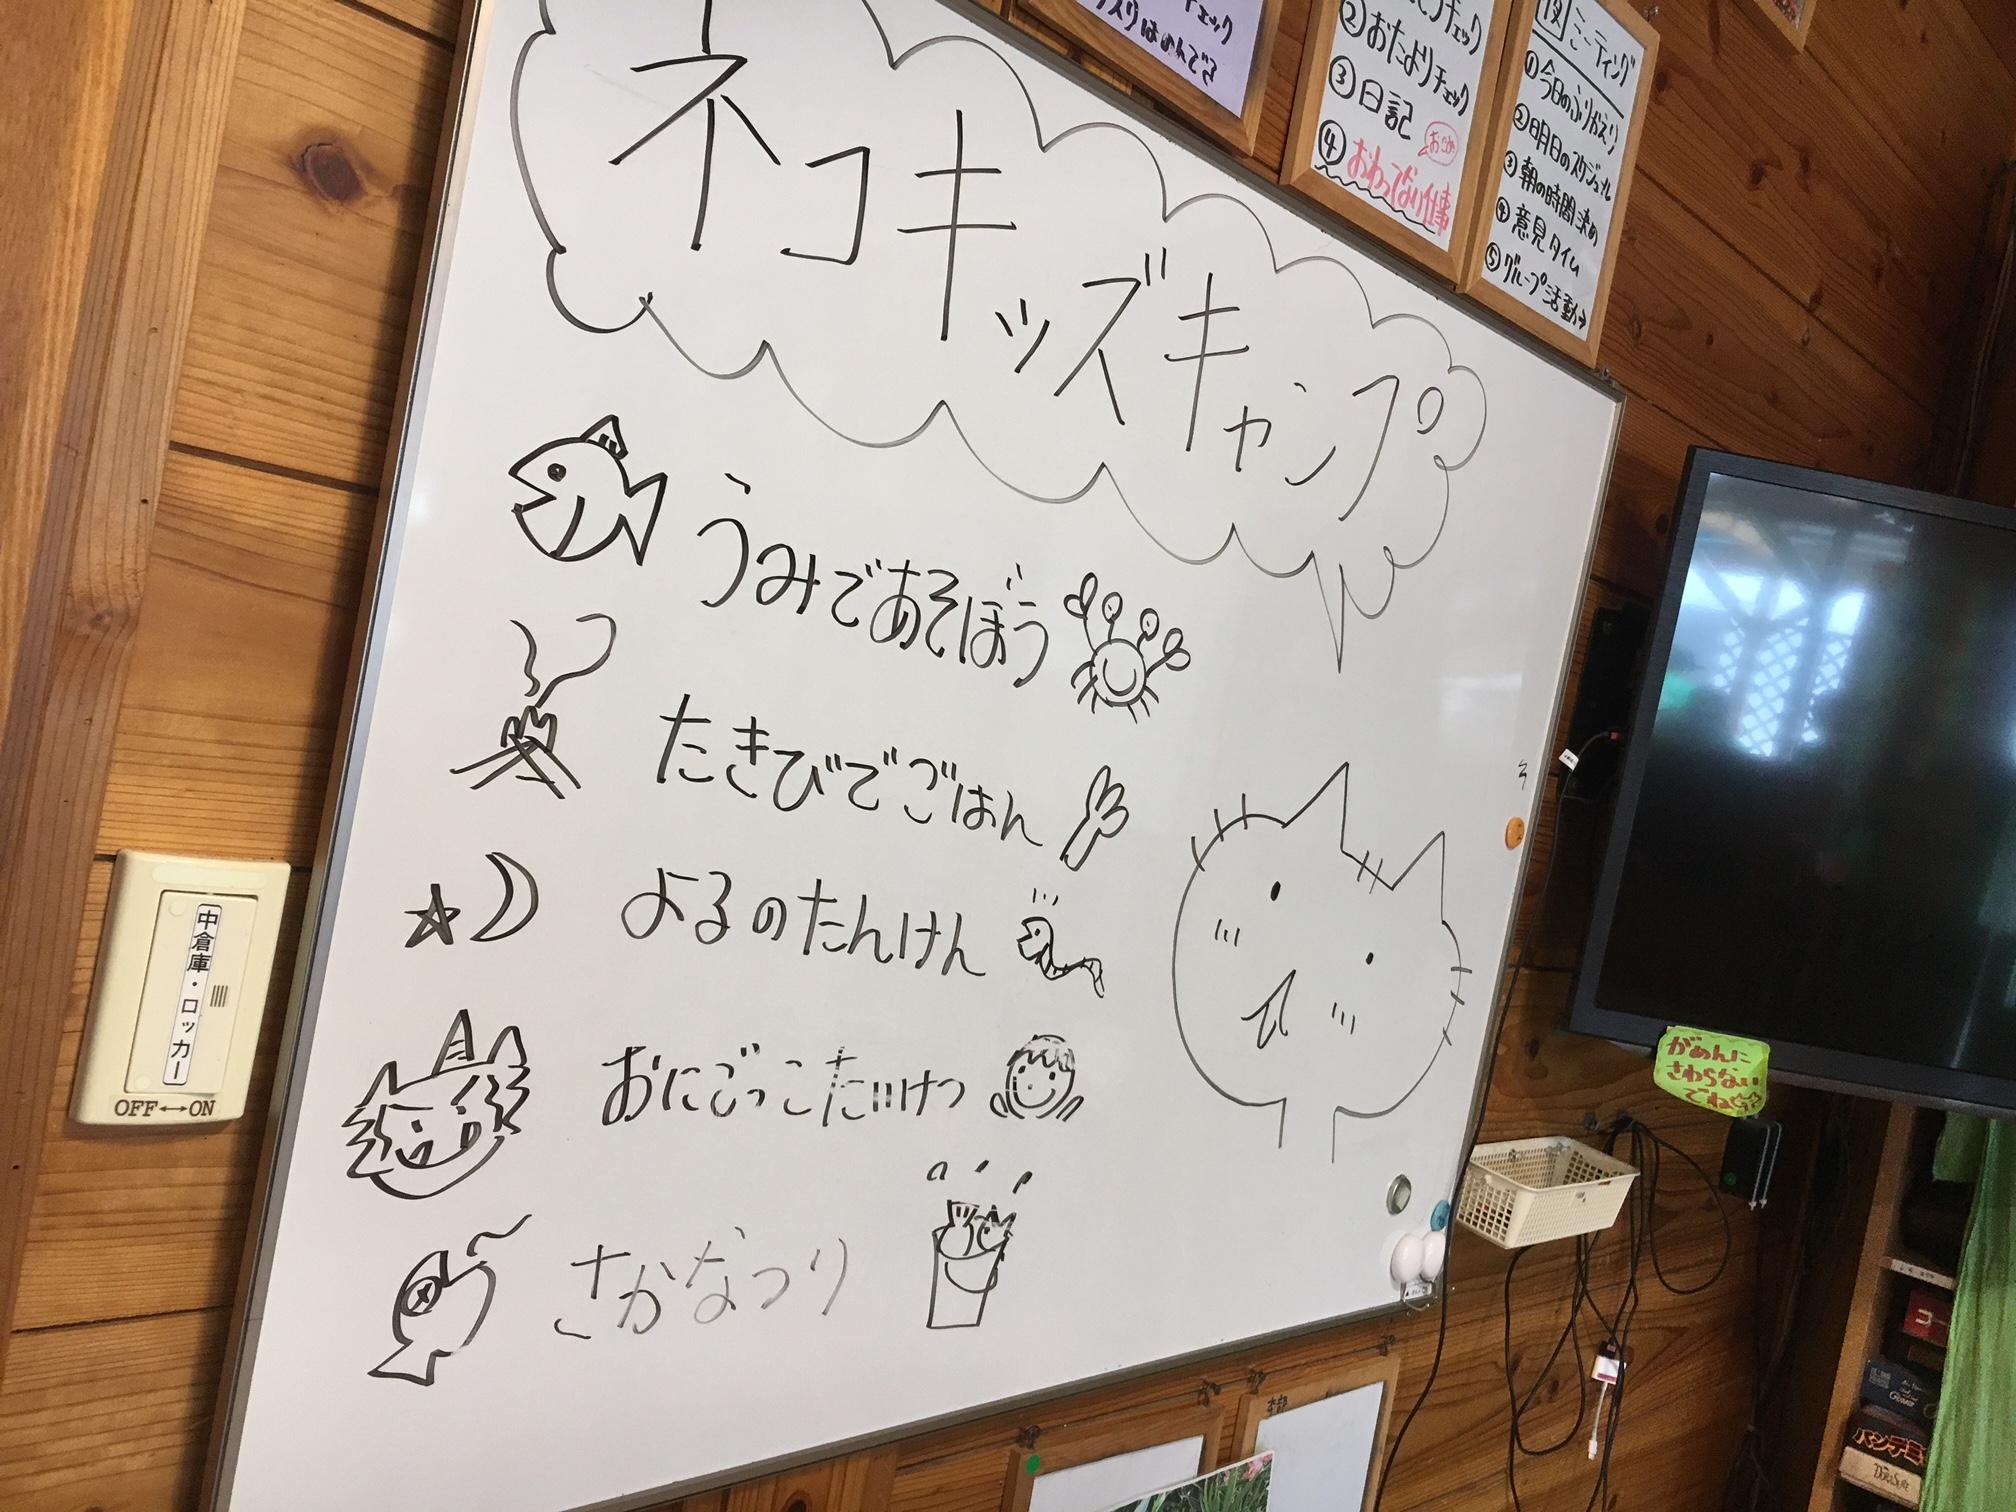 ネコキッズキャンプ
うみであそぼう
たきびでごはん
よるのたんけん
おにごっこたいけつ
さかなつり
チェック
②おたよりチェック
③日記
④おわってない仕事
ミーティング
①今日のふりかえり
②明日のスケジュール
③朝の時間決め
④意見タイム
⑤グループ活動→
中倉庫・ロッカー
OFF↔ON
がめんに
さわらない
でね